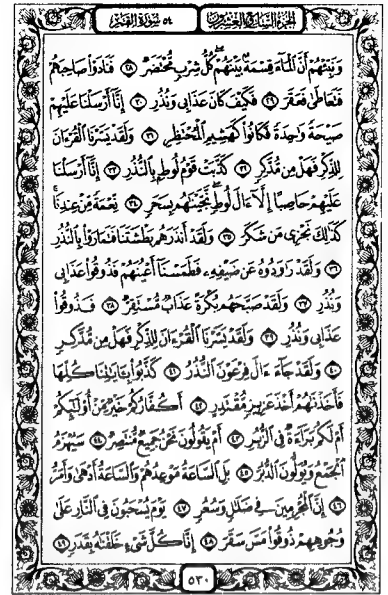 الجزء السابع والعشرون ٥٤ سورة القمر
وَنَبِّئْهُمْ أَنَّ ٱلْمَآءَ قِسْمَةٌۢ بَيْنَهُمْ ۖ كُلُّ شِرْبٍ مُّحْتَضَرٌ ٢٨ فَنَادَوْا۟ صَاحِبَهُمْ
فَتَعَاطَىٰ فَعَقَرَ ٢٩ فَكَيْفَ كَانَ عَذَابِى وَنُذُرِ ٣٠ إِنَّآ أَرْسَلْنَا عَلَيْهِمْ
صَيْحَةً وَٰحِدَةً فَكَانُوا۟ كَهَشِيمِ ٱلْمُحْتَظِرِ ٣١ وَلَقَدْ يَسَّرْنَا ٱلْقُرْءَانَ
لِلذِّكْرِ فَهَلْ مِن مُّدَّكِرٍ ٣٢ كَذَّبَتْ قَوْمُ لُوطٍۭ بِٱلنُّذُرِ ٣٣ إِنَّآ أَرْسَلْنَا
عَلَيْهِمْ حَاصِبًا إِلَّآ ءَالَ لُوطٍ ۖ نَّجَّيْنَٰهُم بِسَحَرٍ ٣٤ نِّعْمَةً مِّنْ عِندِنَا ۚ
كَذَٰلِكَ نَجْزِى مَن شَكَرَ ٣٥ وَلَقَدْ أَنذَرَهُم بَطْشَتَنَا فَتَمَارَوْا۟ بِٱلنُّذُرِ
٣٦ وَلَقَدْ رَٰوَدُوهُ عَن ضَيْفِهِۦ فَطَمَسْنَآ أَعْيُنَهُمْ فَذُوقُوا۟ عَذَابِى
وَنُذُرِ ٣٧ وَلَقَدْ صَبَّحَهُم بُكْرَةً عَذَابٌ مُّسْتَقِرٌّ ٣٨ فَذُوقُوا۟
عَذَابِى وَنُذُرِ ٣٩ وَلَقَدْ يَسَّرْنَا ٱلْقُرْءَانَ لِلذِّكْرِ فَهَلْ مِن مُّدَّكِرٍ
٤٠ وَلَقَدْ جَآءَ ءَالَ فِرْعَوْنَ ٱلنُّذُرُ ٤١ كَذَّبُوا۟ بِـَٔايَٰتِنَا كُلِّهَا
فَأَخَذْنَٰهُمْ أَخْذَ عَزِيزٍ مُّقْتَدِرٍ ٤٢ أَكُفَّارُكُمْ خَيْرٌ مِّنْ أُو۟لَٰٓئِكُمْ
أَمْ لَكُم بَرَآءَةٌ فِى ٱلزُّبُرِ ٤٣ أَمْ يَقُولُونَ نَحْنُ جَمِيعٌ مُّنتَصِرٌ ٤٤ سَيُهْزَمُ
ٱلْجَمْعُ وَيُوَلُّونَ ٱلدُّبُرَ ٤٥ بَلِ ٱلسَّاعَةُ مَوْعِدُهُمْ وَٱلسَّاعَةُ أَدْهَىٰ وَأَمَرُّ
٤٦ إِنَّ ٱلْمُجْرِمِينَ فِى ضَلَٰلٍ وَسُعُرٍ ٤٧ يَوْمَ يُسْحَبُونَ فِى ٱلنَّارِ عَلَىٰ
وُجُوهِهِمْ ذُوقُوا۟ مَسَّ سَقَرَ ٤٨ إِنَّا كُلَّ شَىْءٍ خَلَقْنَٰهُ بِقَدَرٍ ٤٩
٥٣٠